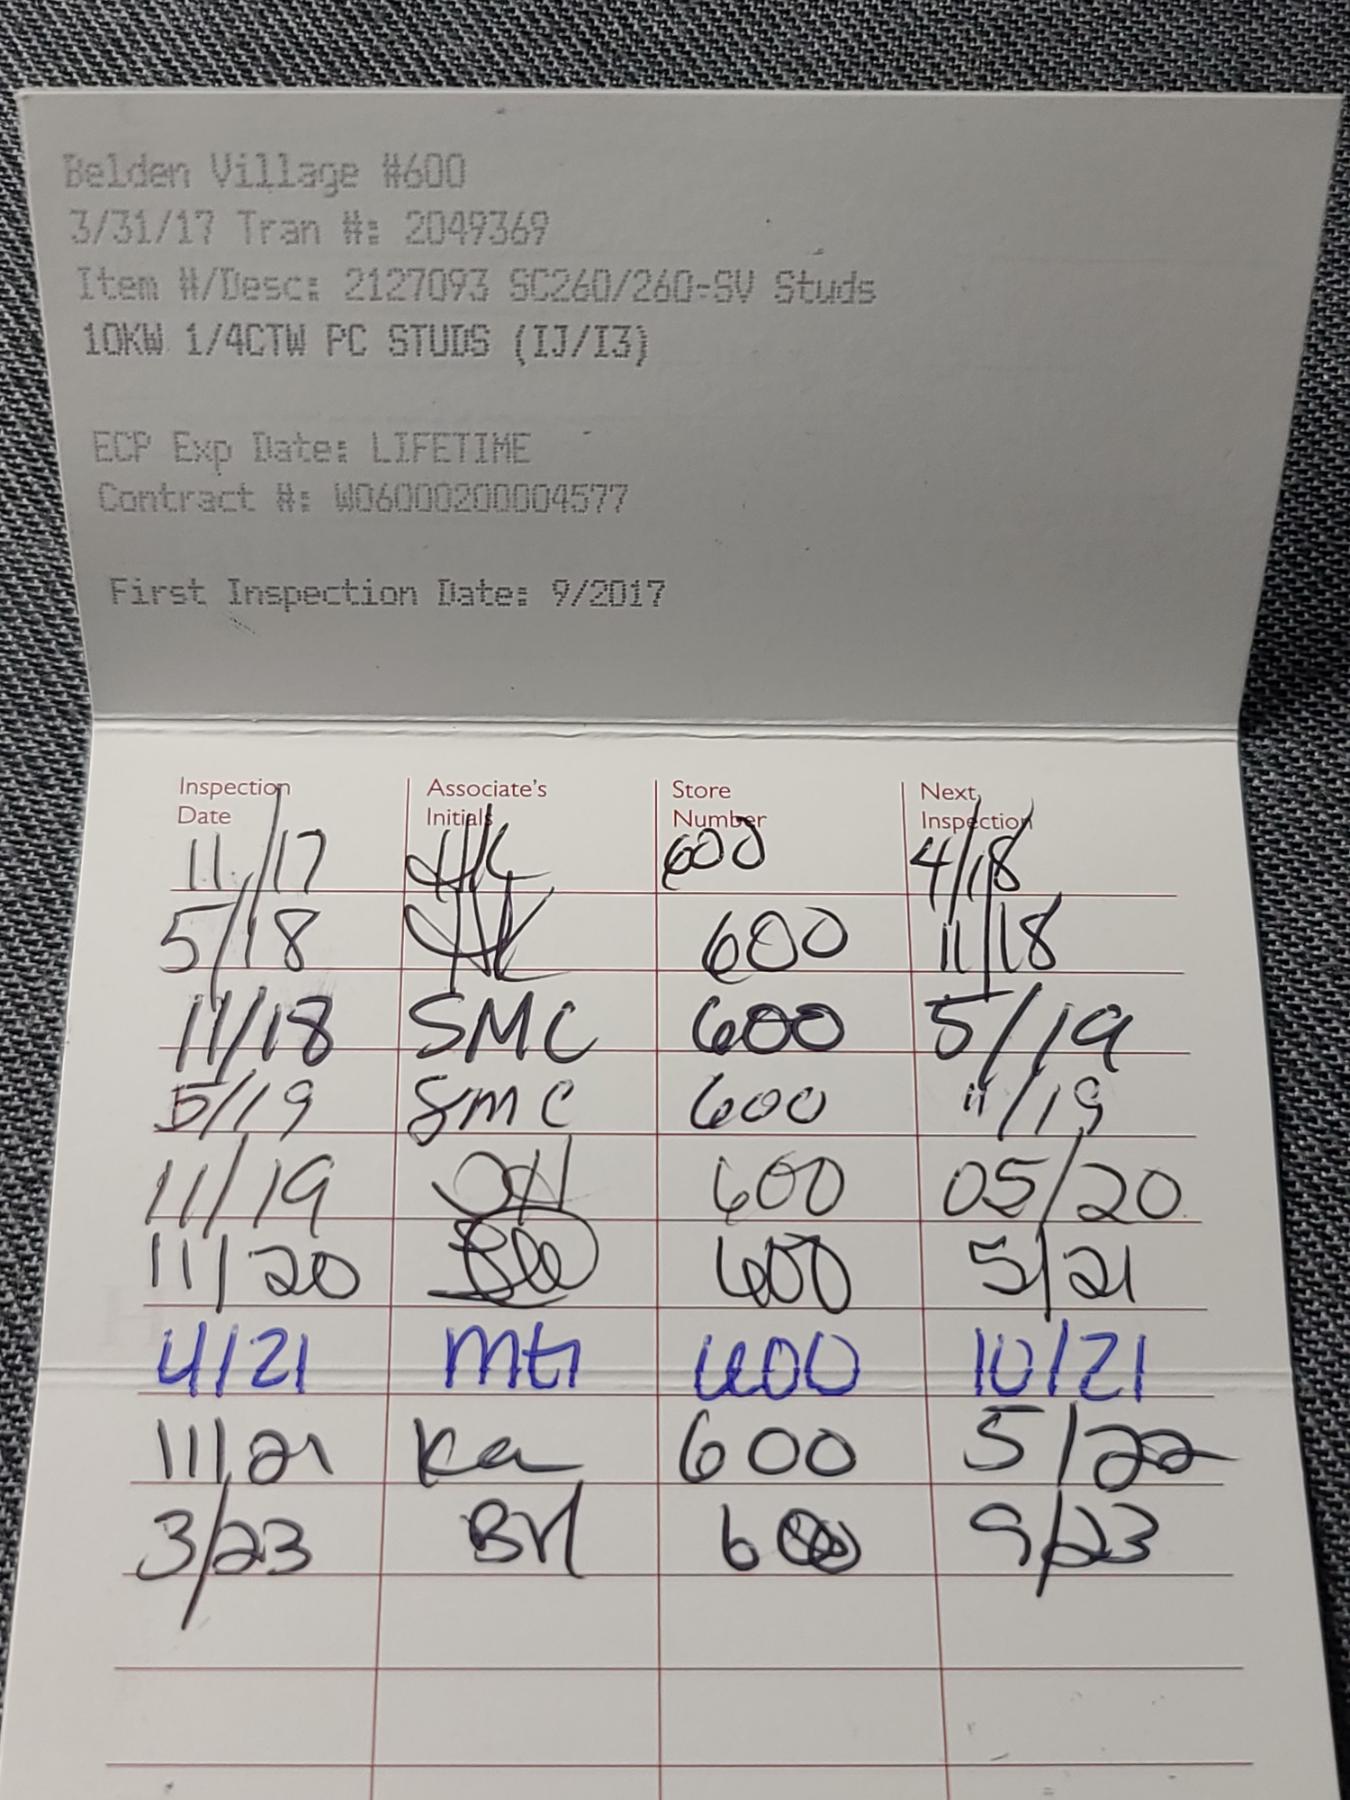 Belden Village #600
3/31/17 Tran #: 2049369
Item #/Desc: 2127093 SC260/260-SV Studs
10KW 1/4CTW PC STUDS (IJ/I3)
ECP Exp Date: LIFETIME
Contract #: W06000200004577
First Inspection Date: 9/2017
Inspection Date Associate's Initials Store Number Next Inspection
11/17 HK 600 4/18
5/18 HK 600 11/18
11/18 SMC 600 5/19
5/19 SMC 600 11/19
11/19 600 05/20
11/20 600 5/21
4/21 600 10/21
11/21 Ka 600 5/22
3/23 600 9/23